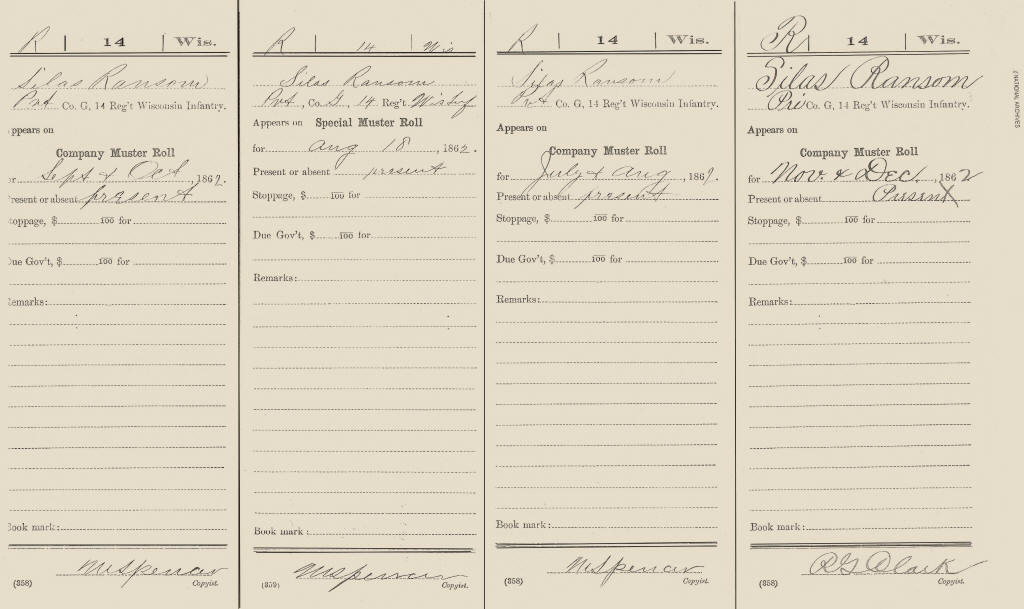 R 14 Wis.
Silas Ransom
Pvt Co. G, 14 Reg't Wisconsin Infantry.
Appears on
Company Muster Roll
or Sept & Oct, 1862.
Present or absent present
Stoppage, $ 100 for
Due Gov't, $ 100 for
Remarks:
Book mark:
M Spencer
(358) Copyist.
R 14 Wis
Silas Ransom
Pvt., Co. G., 14 Reg't Wis Inf
Appears on Special Muster Roll
for Aug 18, 1862.
Present or absent present
Stoppage, $ 100 for
Due Gov't, $ 100 for
Remarks:
Book mark:
M Spencer
(359) Copyist.
R 14 Wis.
Silas Ransom
Pvt Co. G, 14 Reg't Wisconsin Infantry.
Appears on
Company Muster Roll
for July & Aug, 1862.
Present or absent present
Stoppage, $ 100 for
Due Gov't, $ 100 for
Remarks:
Book mark:
M Spencer
(358) Copyist.
R 14 Wis.
Silas Ransom
Pri Co. G, 14 Reg't Wisconsin Infantry.
Appears on
Company Muster Roll
for Nov. & Dec., 1862
Present or absent Present
Stoppage, $ 100 for
Due Gov't, $ 100 for
Remarks:
Book mark:
Clark
(358) Copyist.
NATIONAL ARCHIVES